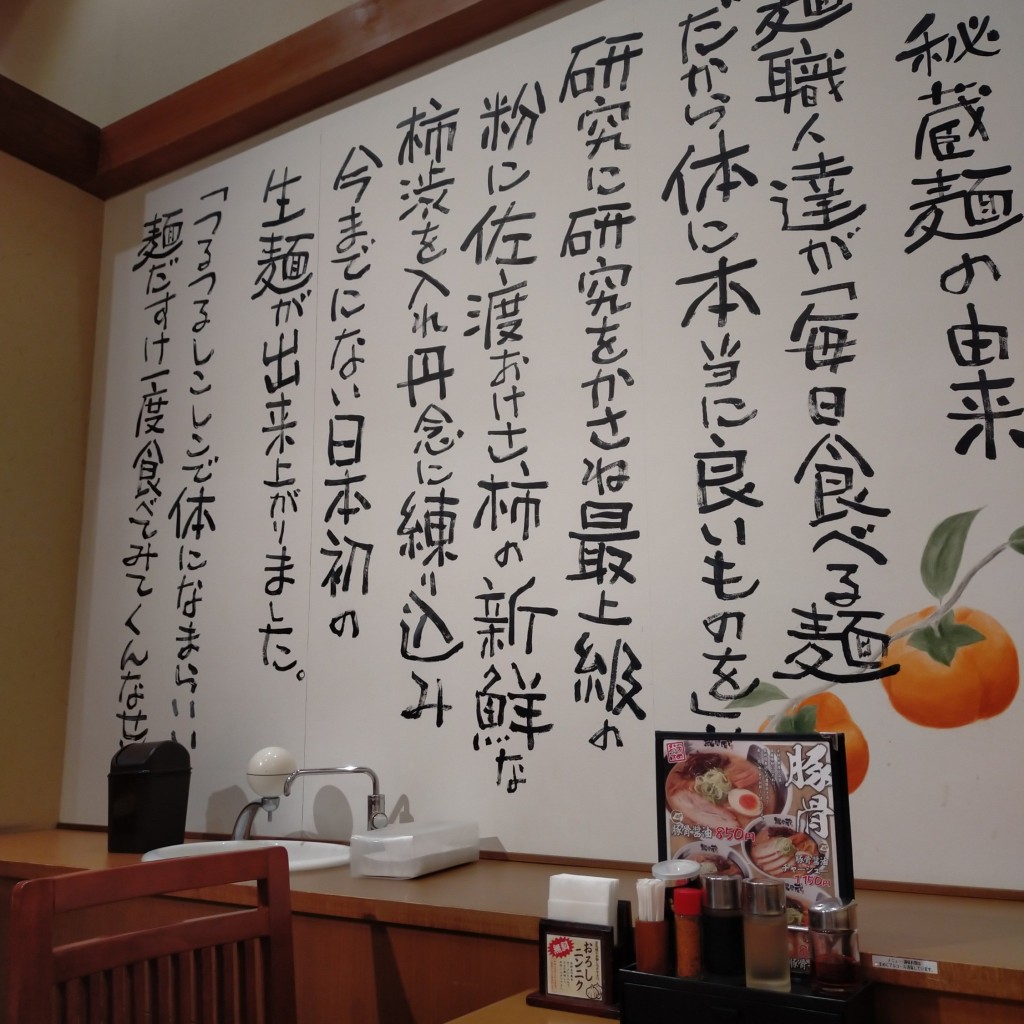 秘蔵麺の由来
麺職人達が「毎日食べる麺
だから体に本当に良いものを」
研究に研究をかさね最上級の
粉に佐渡おけさ柿の新鮮な
柿渋を入れ丹念に練り込み
今までにない日本初の
生麺が出来上がりました。
「つるつるしこしこで体になまらいい
麺だすけ一度食べてみてくんなせ
豚骨
豚骨醤油 850円
豚骨醤油
チャーシュー
1,150円
おろし
ニンニク
無料